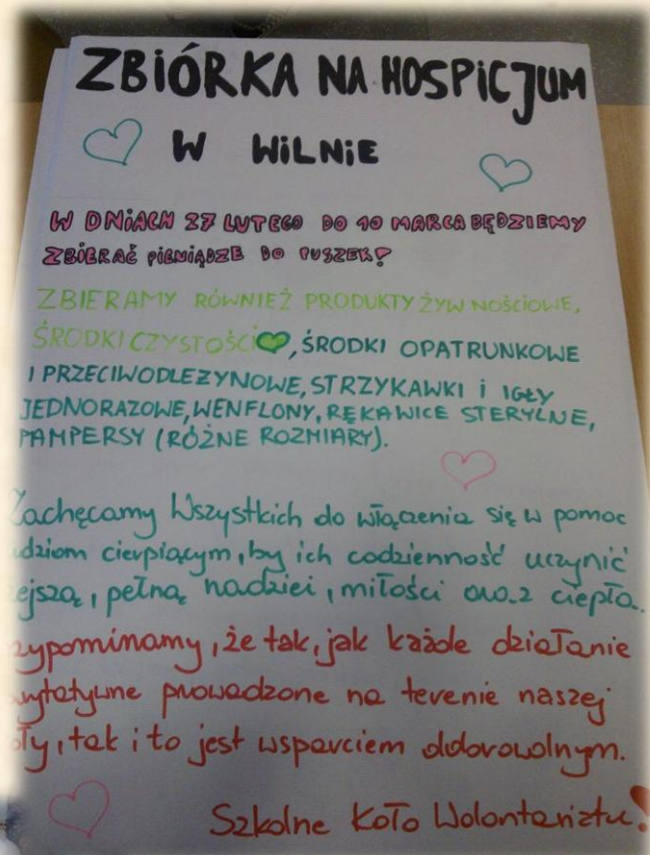 ZBIÓRKA NA HOSPICJUM
W WILNIE
W DNIACH 27 LUTEGO DO 10 MARCA BĘDZIEMY
ZBIERAĆ PIENIĄDZE DO PUSZEK!
ZBIERAMY RÓWNIEŻ PRODUKTY ŻYWNOŚCIOWE,
ŚRODKI CZYSTOŚCI, ŚRODKI OPATRUNKOWE
I PRZECIWODLEŻYNOWE, STRZYKAWKI i IGŁY
JEDNORAZOWE, WENFLONY, RĘKAWICE STERYLNE,
PAMPERSY (RÓŻNE ROZMIARY).
Zachęcamy Wszystkich do włączenia się w pomoc
udziom cierpiącym, by ich codzienność uczynić
ejszą, pełną nadziei, miłości oraz ciepła.
zypominamy, że tak, jak każde działanie
arytatywne prowadzone na terenie naszej
oły, tak i to jest wsparciem dobrowolnym.
Szkolne Koło Wolontariatu!